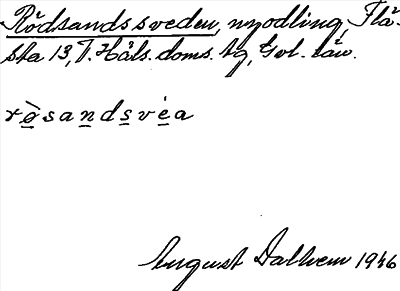 Rödsandssveden, nyodling, Flä-
sta 13, T. Häls. doms. tg, Gvl. län.
rø̀sandsvėa
August Dalhem 1946